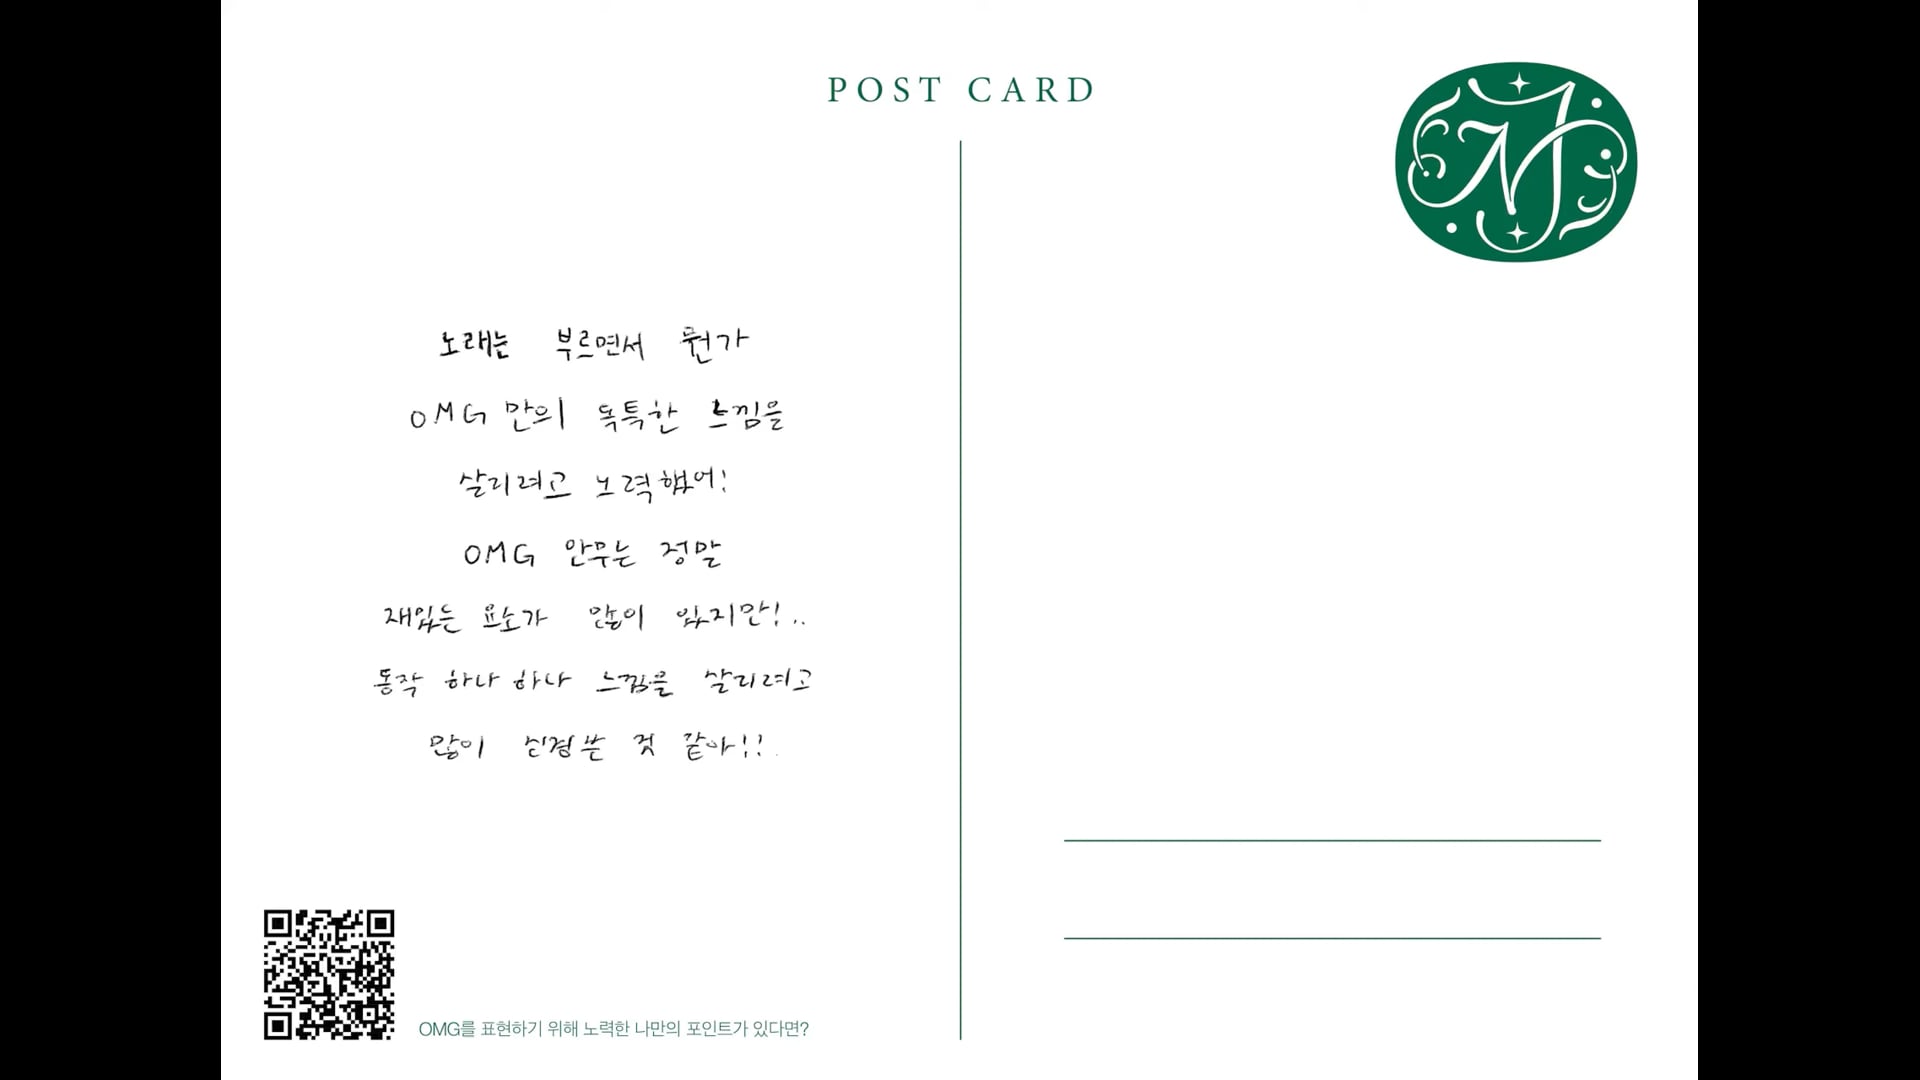 POST CARD
노래는 부르면서 뭔가
OMG 만의 독특한 느낌을
살리려고 노력했어!
OMG 안무는 정말
재밌는 요소가 많이 있지만!..
동작 하나하나 느낌을 살리려고
많이 신경쓴 것 같아!!.
OMG를 표현하기 위해 노력한 나만의 포인트가 있다면?